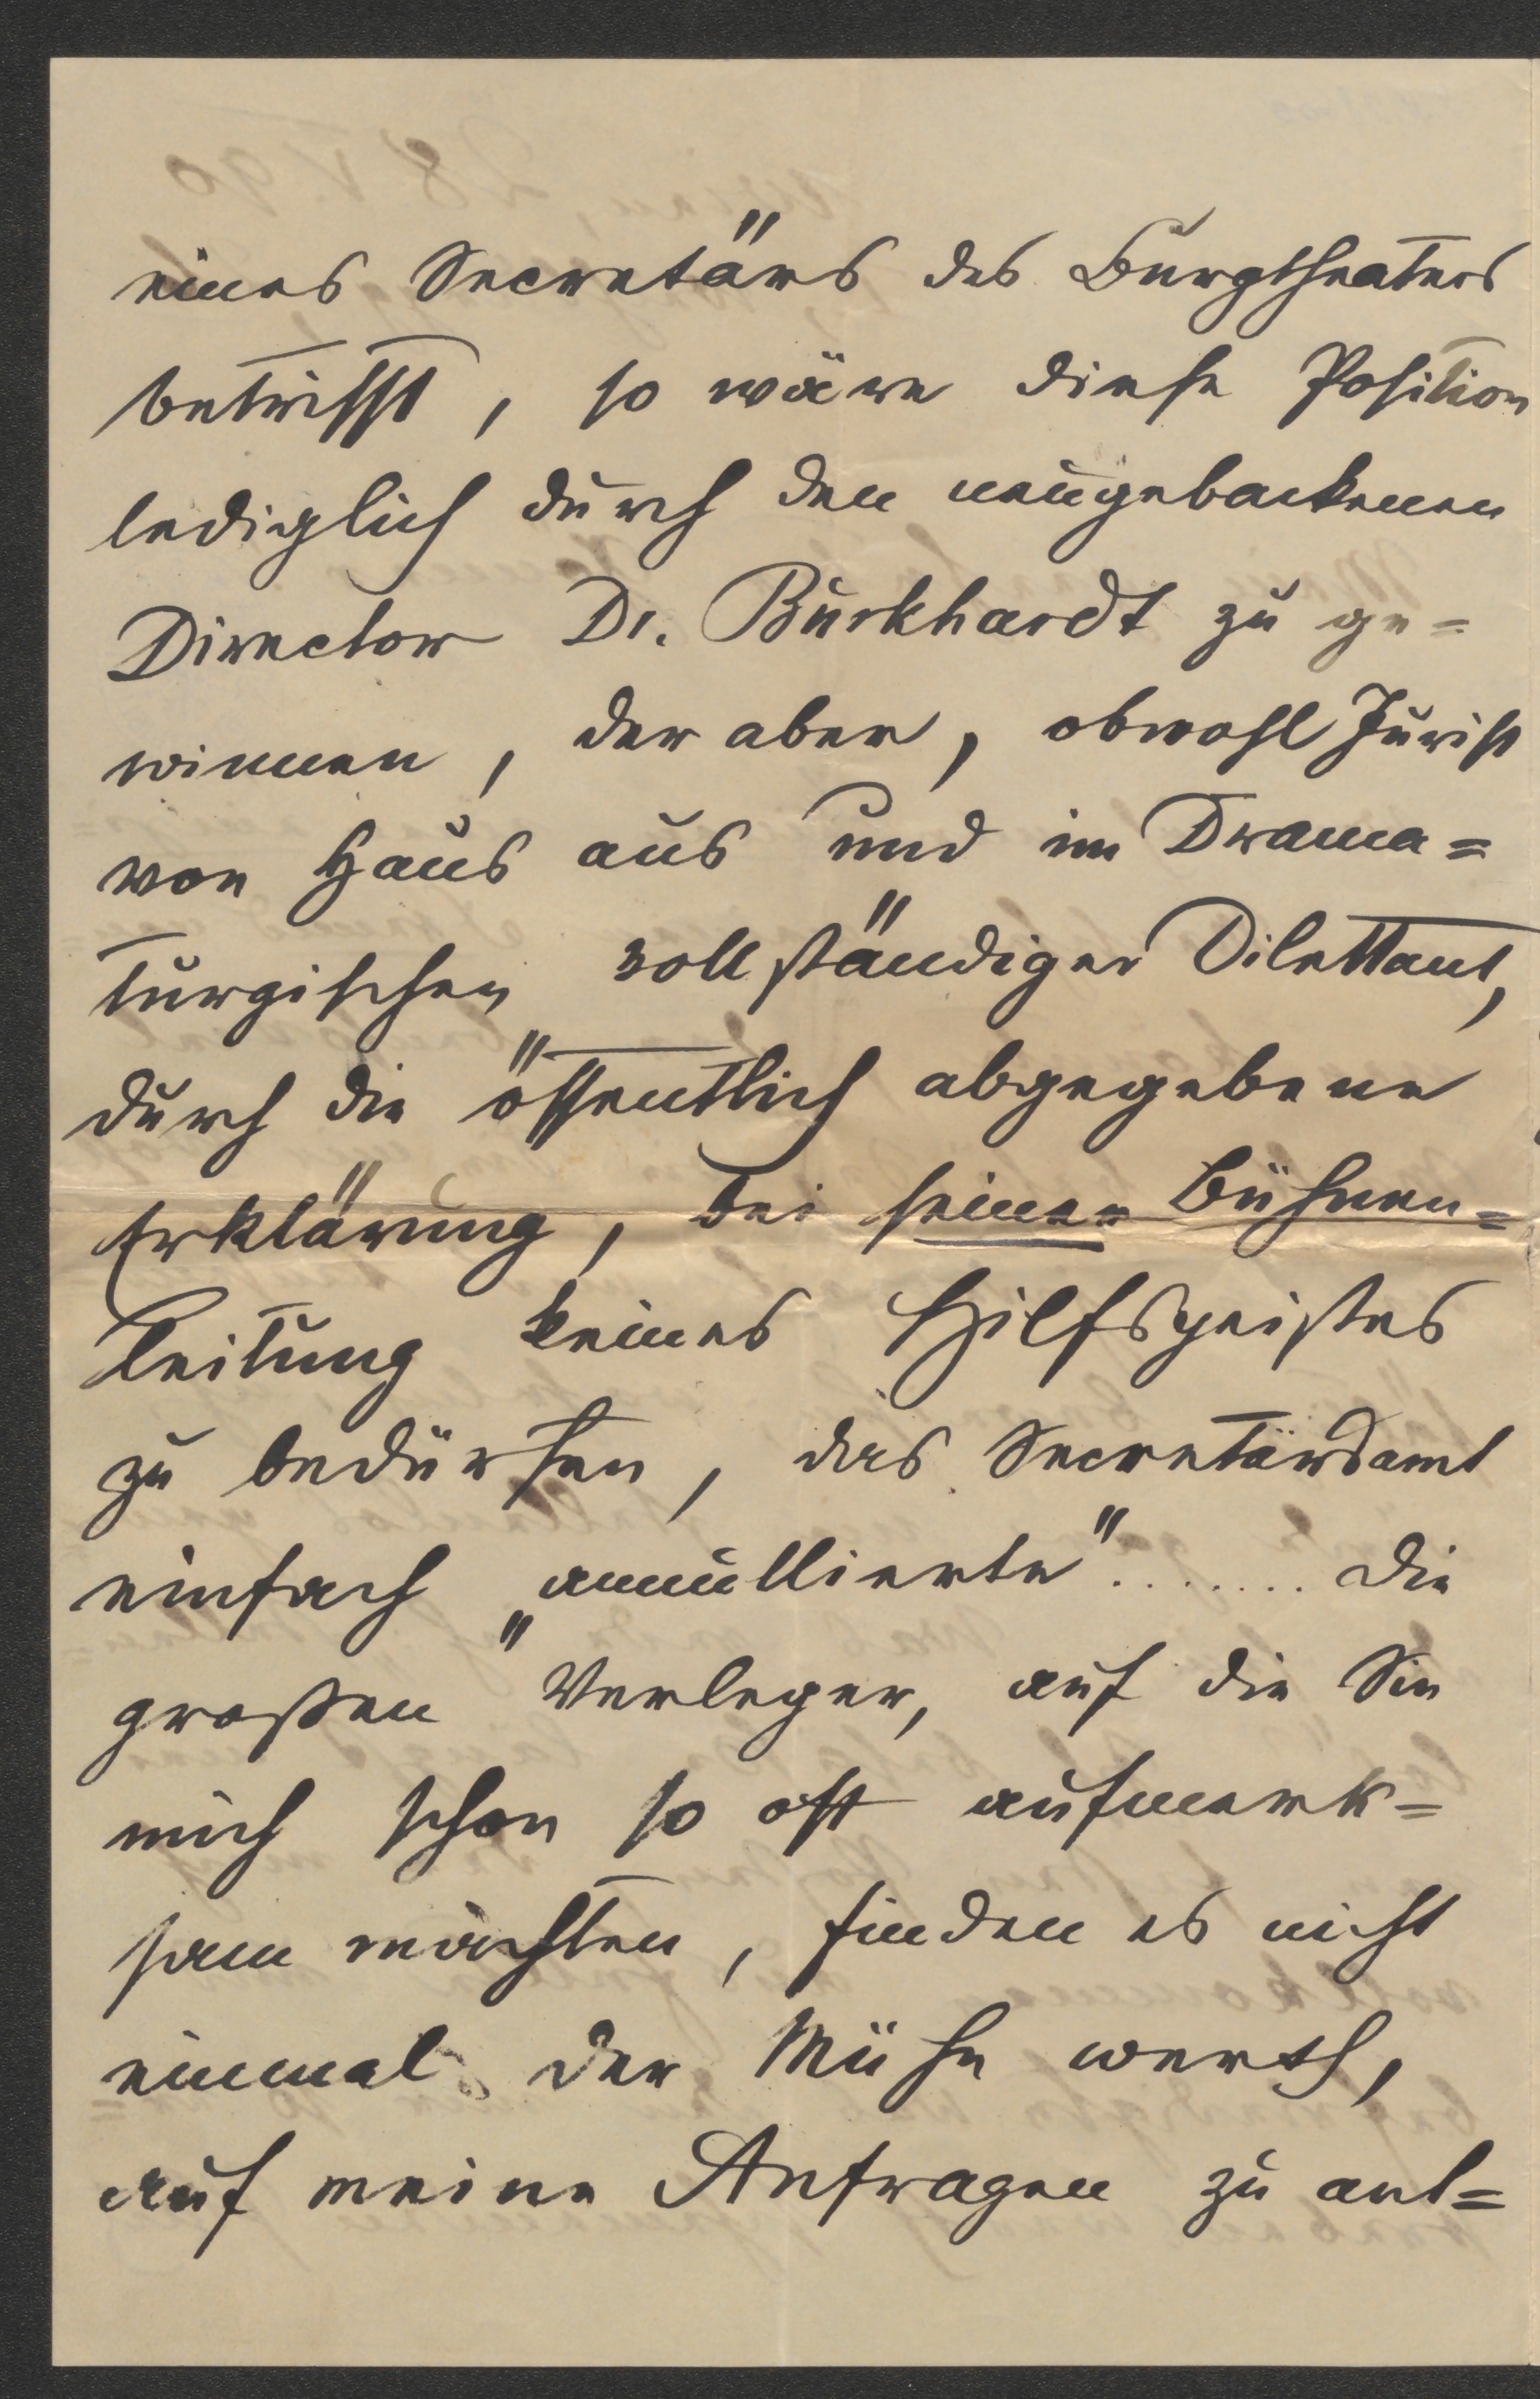 eines Secretärs des Burgtheaters
betrifft, so wäre diese Position
lediglich durch den neugebackenen
Director Dr. Burkhardt zu ge=
winnen, der aber, obwohl Jurist
von Haus aus und im Drama=
turgischen vollständiger Dilettant,
durch die öffentlich abgegebene
Erklärung, bei seiner Bühnen=
leitung keines Hilfsgeistes
zu bedürfen, das Secretärsamt
einfach „annullierte" ....... Die
großen Verleger, auf die Sie
mich schon so oft aufmerk=
sam machten, finden es nicht
einmal der Mühe werth,
auf meine Anfragen zu ant=